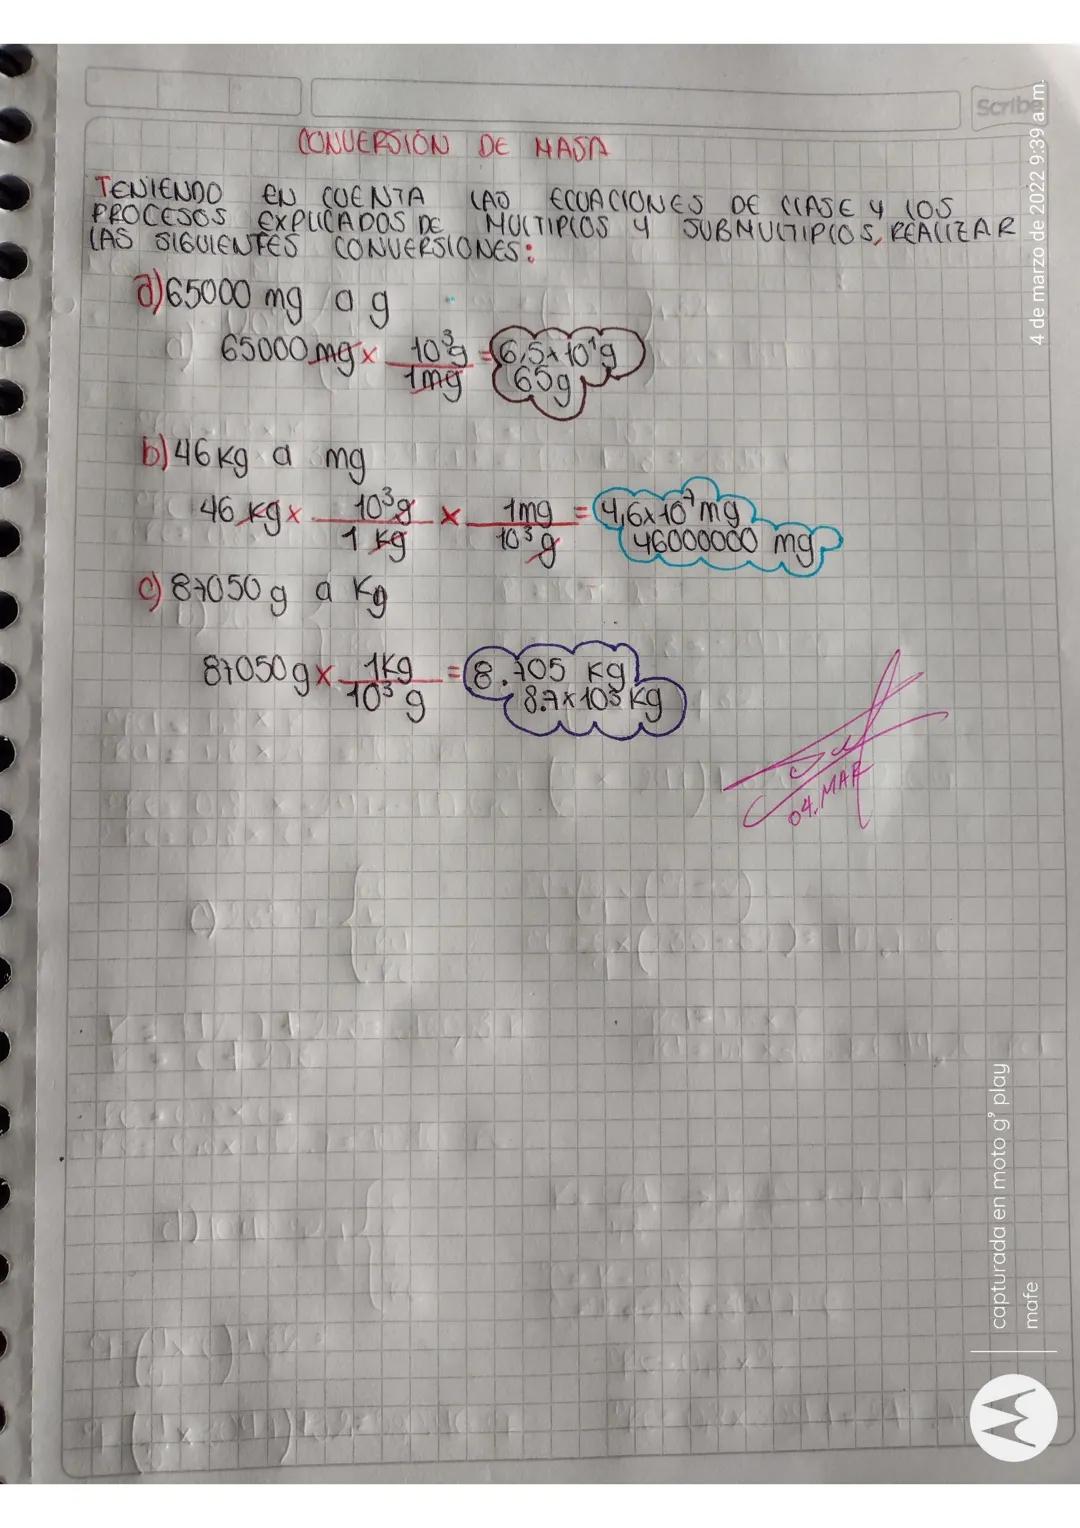 Scribe
CONVERSIÓN DE MASA
TENIENDO EN CUENTA LAS ECUACIONES DE CLASE Y LOS
PROCESOS EXPLICADOS DE MULTIPLOS Y SUBMULTIPLOS, REALIZAR
LAS SIGUIENTES CONVERSIONES:
a) 65000 mg a g
65000 mg x 10³g / 1mg = 6,5x10¹g
65g
b) 46 kg a mg
46 kg x 10³g / 1 kg x 1mg / 10³ g = 4,6x10⁷mg
46000000 mg
c) 87050 g a Kg
87050 g x 1Kg / 10³ g = 8.705 kg
8.7x10³ kg
04. MAR
4 de marzo de 2022 9:39 a.m.
capturada en moto g⁹ play
mafe